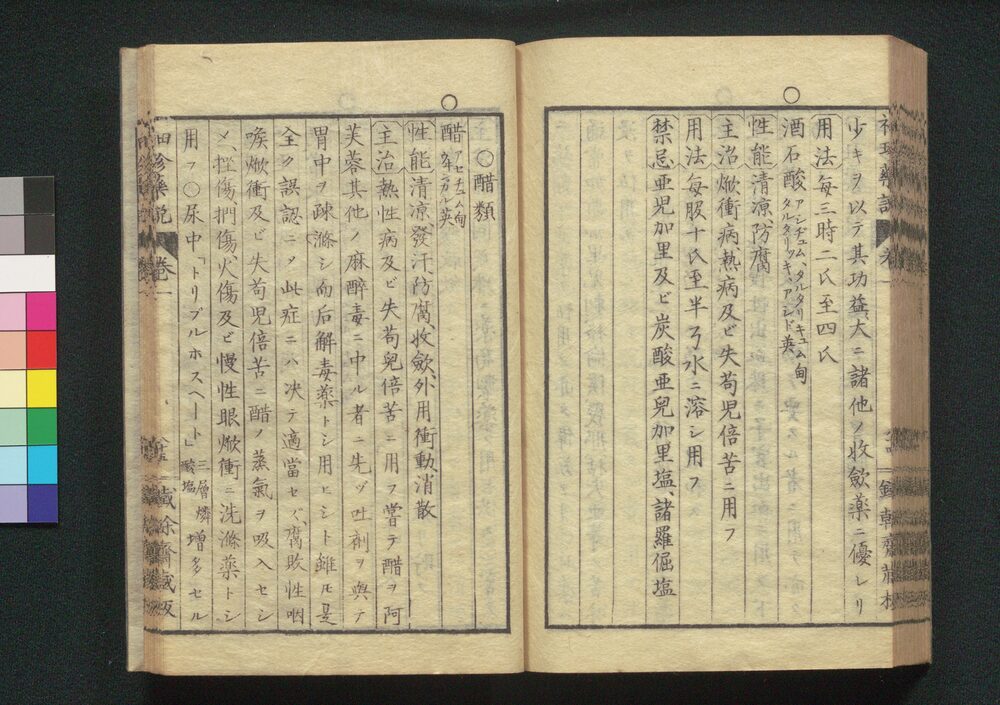 少キヲ以テ其功益大ニ諸他ノ收斂薬ニ優レリ
用法毎三時二氏至四氏
酒石酸 アシヂュム、タルタリキュム甸 タルタリッキ、アシド英
性能清凉、防腐
主治焮衝病熱病及ビ失苟児倍苦ニ用フ
用法毎服十氏至半弓水ニ溶シ用フ
禁忌亜児加里及ビ炭酸亜児加里塩、諸羅倔塩
〇醋類
醋
性能清凉、發汗、防腐、收斂、外用衝動、消散
主治熱性病及ビ失苟児倍苦ニ用フ嘗テ醋ヲ阿
芙蓉其他ノ麻醉毒ニ中ル者ニ先ヅ吐劑ヲ與ヘ
胃中ヲ疎滌シ而后解毒薬トシ用ヒシト雖モ是
全ク誤認ニシテ此症ニハ决テ適當セズ、腐敗性咽
喉焮衝及ビ失苟児倍苦ニ醋ノ蒸氣ヲ吸入セシ
メ、挫傷捫傷、火傷及ビ慢性眼焮衝ニ洗滌薬トシ
用フ〇尿中「トリプルホスヘート」三層燐酸塩増多セル